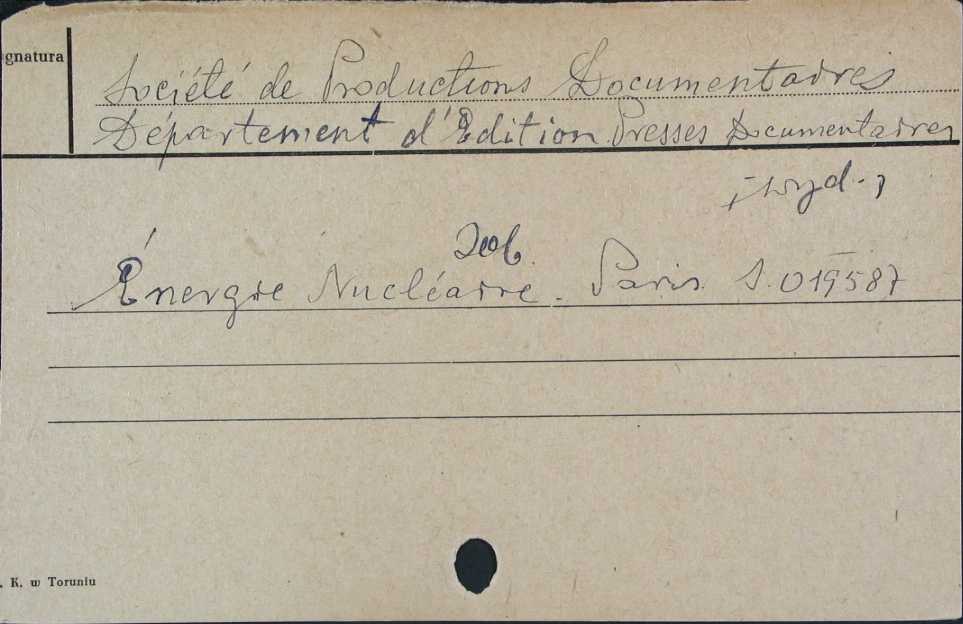 ygnatura
Société de Productions Documentaires
Département d'Edition Presses Documentaires
[wyd.]
Zob.
Énergie Nucléaire. Paris. S. 019587
. K. w Toruniu